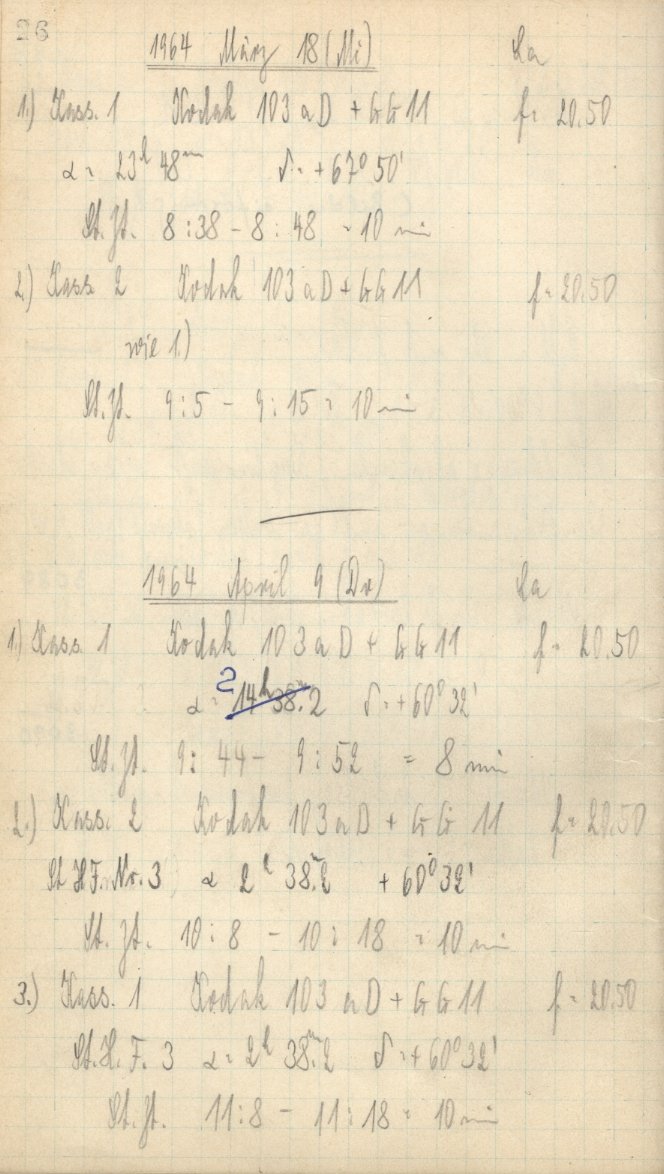 26
1964 März 18 (Mi) La
1.) Kass. 1 Kodak 103 aD + GG 11 f = 20.50
α = 23h 48m δ = +67° 50'
St. Zt. 8:38 - 8:48 = 10 min
2.) Kass 2 Kodak 103 aD + GG 11 f = 20.50
wie 1.)
St. Zt. 9:5 - 9:15 = 10 min
1964 April 9 (Do) La
1.) Kass 1 Kodak 103 aD + GG 11 f = 20.50
α = 2 14h 38m.2 δ = +60° 32'
St. Zt. 9:44 - 9:52 = 8 min
2.) Kass. 2 Kodak 103 aD + GG 11 f = 20.50
St H F. Nr. 3 α 2h 38m.2 +60° 32'
St. Zt. 10:8 - 10:18 = 10 min
3.) Kass. 1 Kodak 103 aD + GG 11 f = 20.50
St. H. F. 3 α = 2h 38m.2 δ = +60° 32'
St. Zt. 11:8 - 11:18 = 10 min